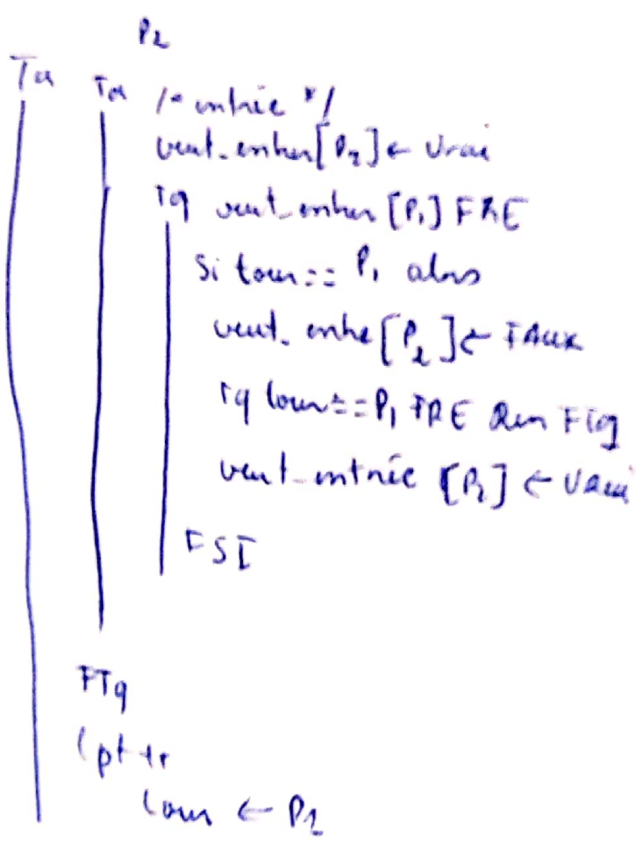 P2
Tq Tq /* entrée */
veut_entrer [P2] ← Vrai
Tq veut_entrer [P1] FRE
Si tour == P1 alors
veut_entre [P2] ← FAux
Tq tour == P1 FRE Rien FTq
veut_entrée [P2] ← VRai
FSI
FTq
Cpt++
tour ← P1